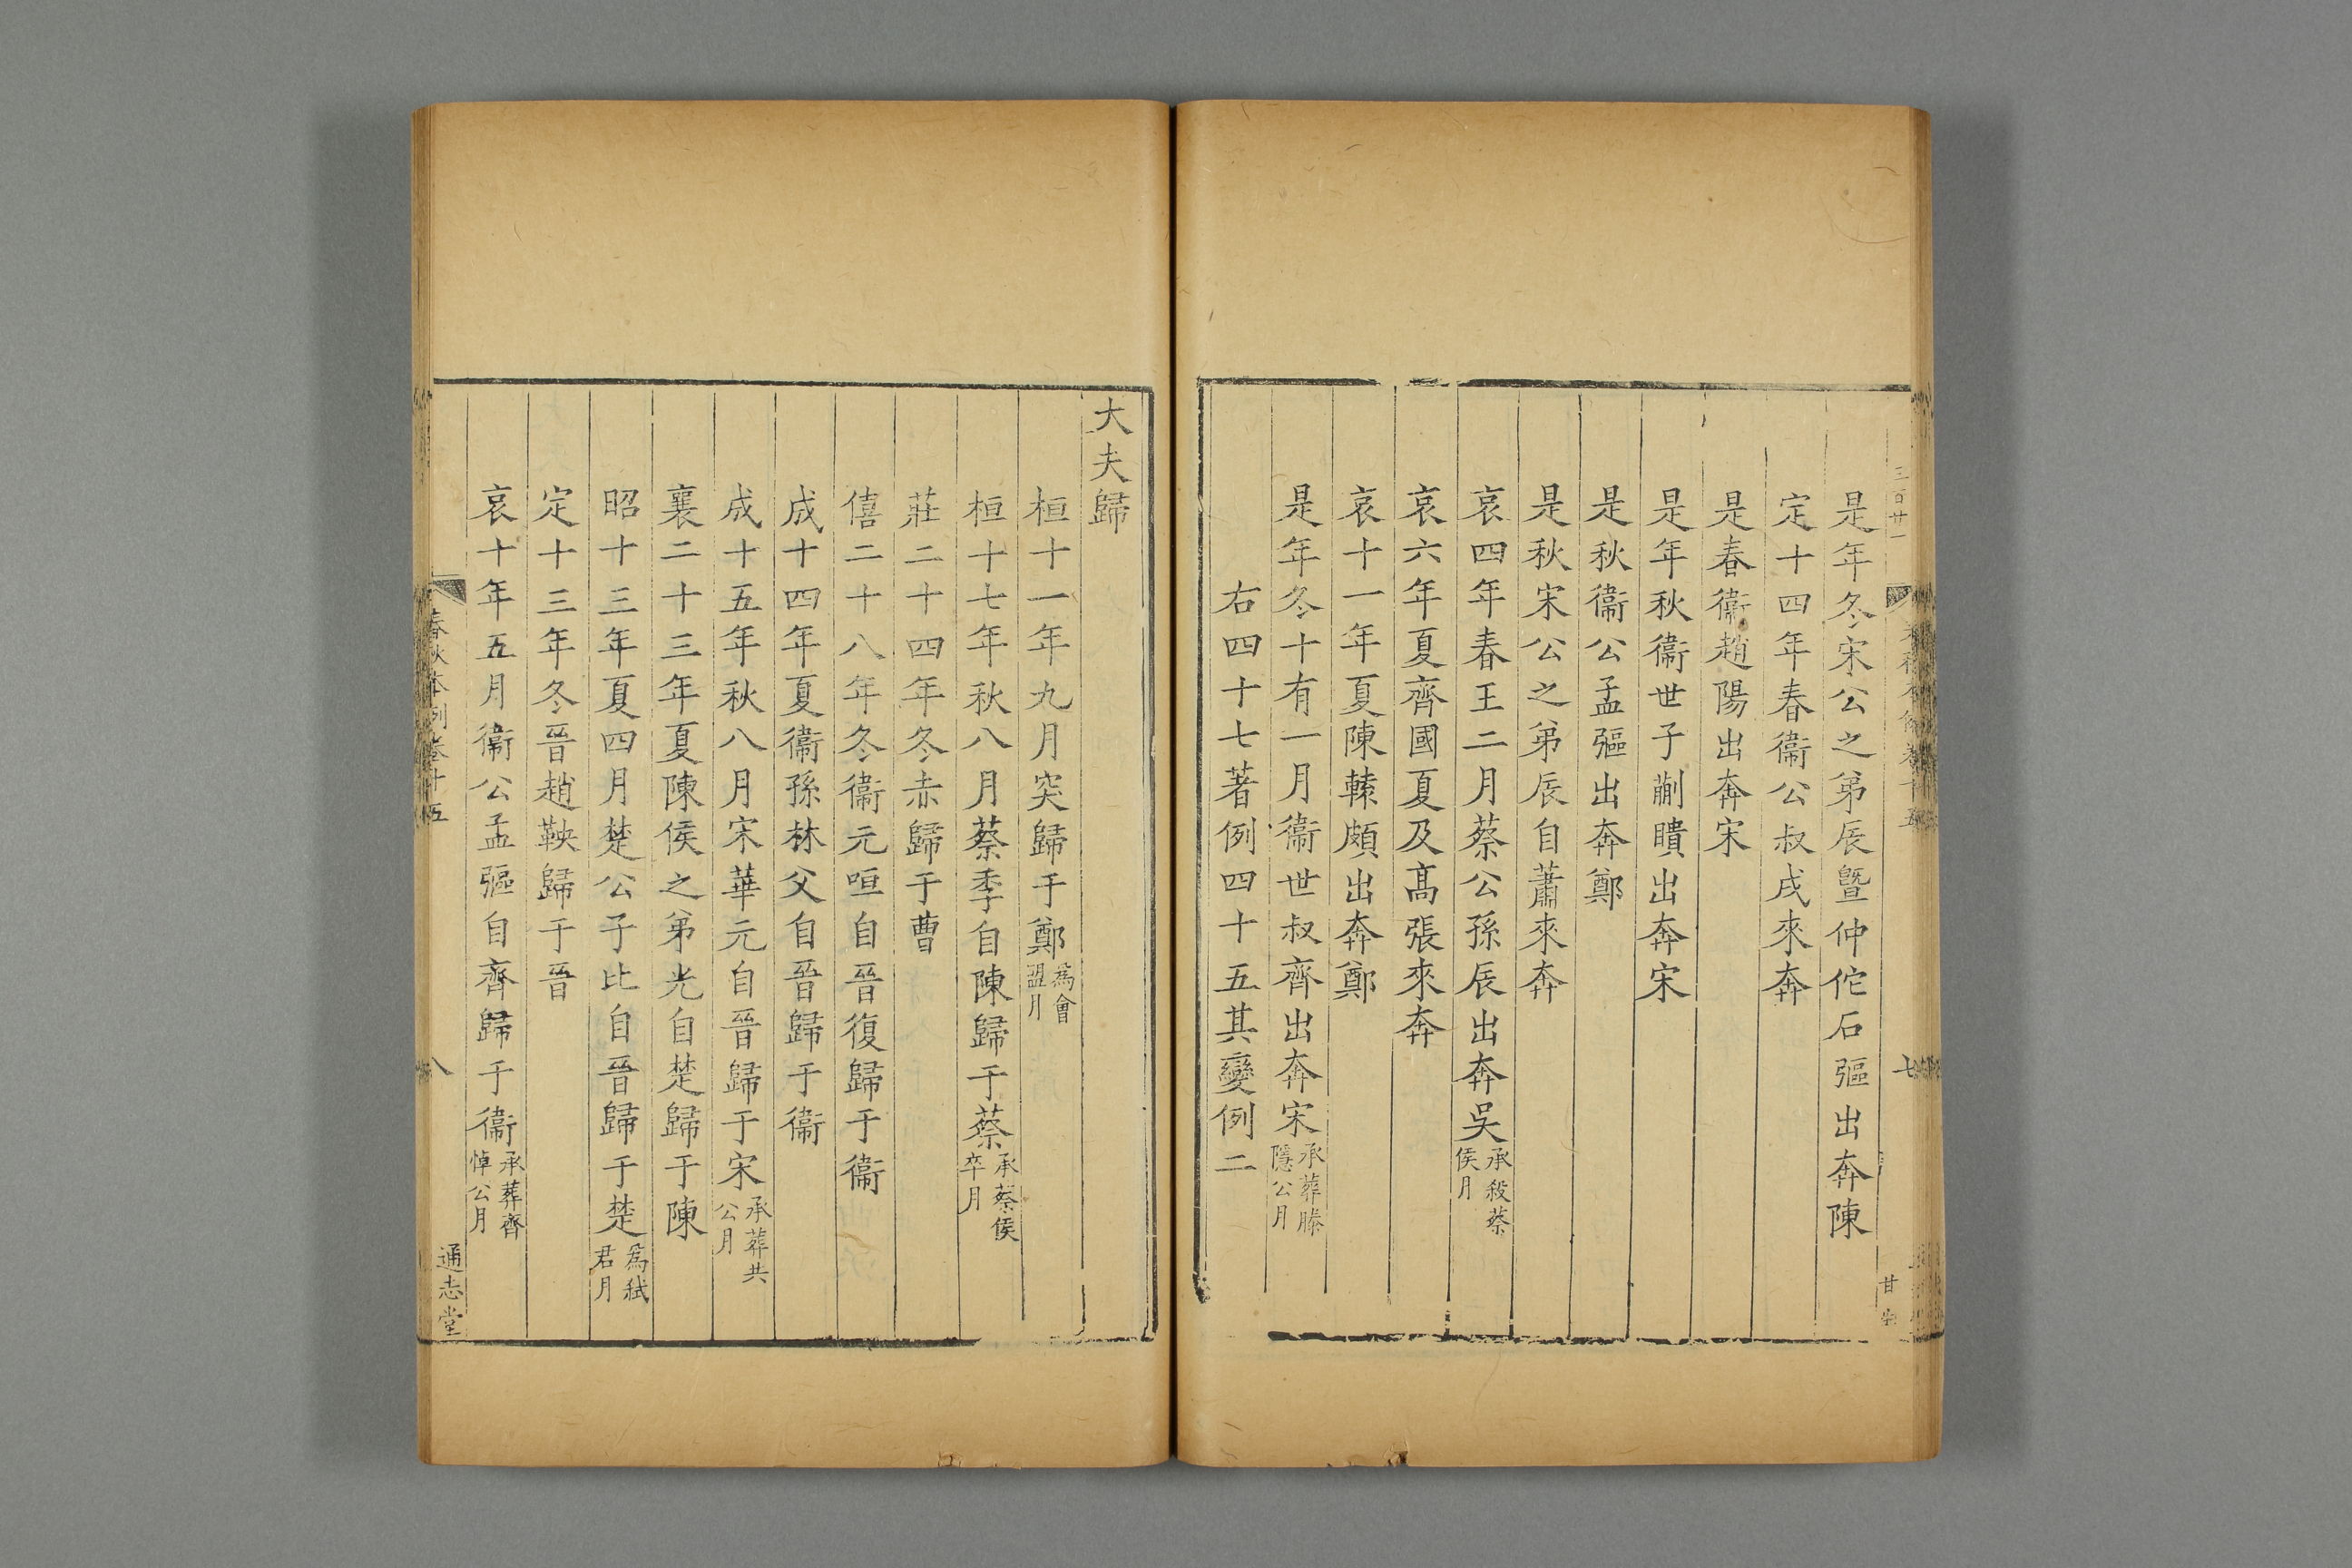 三百廿一
是年冬宋公之弟辰暨仲佗石彄出奔陳
定十四年春衞公叔戌來奔
是春衞趙陽出奔宋
是年秋衞世子蒯聵出奔宋
是秋衞公孟彄出奔鄭
是秋宋公之弟辰自蕭來奔
哀四年春王二月蔡公孫辰出奔吳承殺蔡侯月
哀六年夏齊國夏及髙張來奔
哀十一年夏陳轅頗出奔鄭
是年冬十有一月衞世叔齊出奔宋承葬滕隱公月
右四十七著例四十五其變例二
大夫歸
桓十一年九月突歸于鄭為會盟月
桓十七年秋八月蔡季自陳歸于蔡承蔡侯卒月
莊二十四年冬赤歸于曹
僖二十八年冬衞元咺自晉復歸于衞
成十四年夏衞孫林父自晉歸于衞
成十五年秋八月宋華元自晉歸于宋承葬共公月
襄二十三年夏陳侯之弟光自楚歸于陳
昭十三年夏四月楚公子比自晉歸于楚為弑君月
定十三年冬晉趙鞅歸于晉
哀十年五月衞公孟彄自齊歸于衞承葬齊悼公月
春秋本例卷十五
八
通志堂